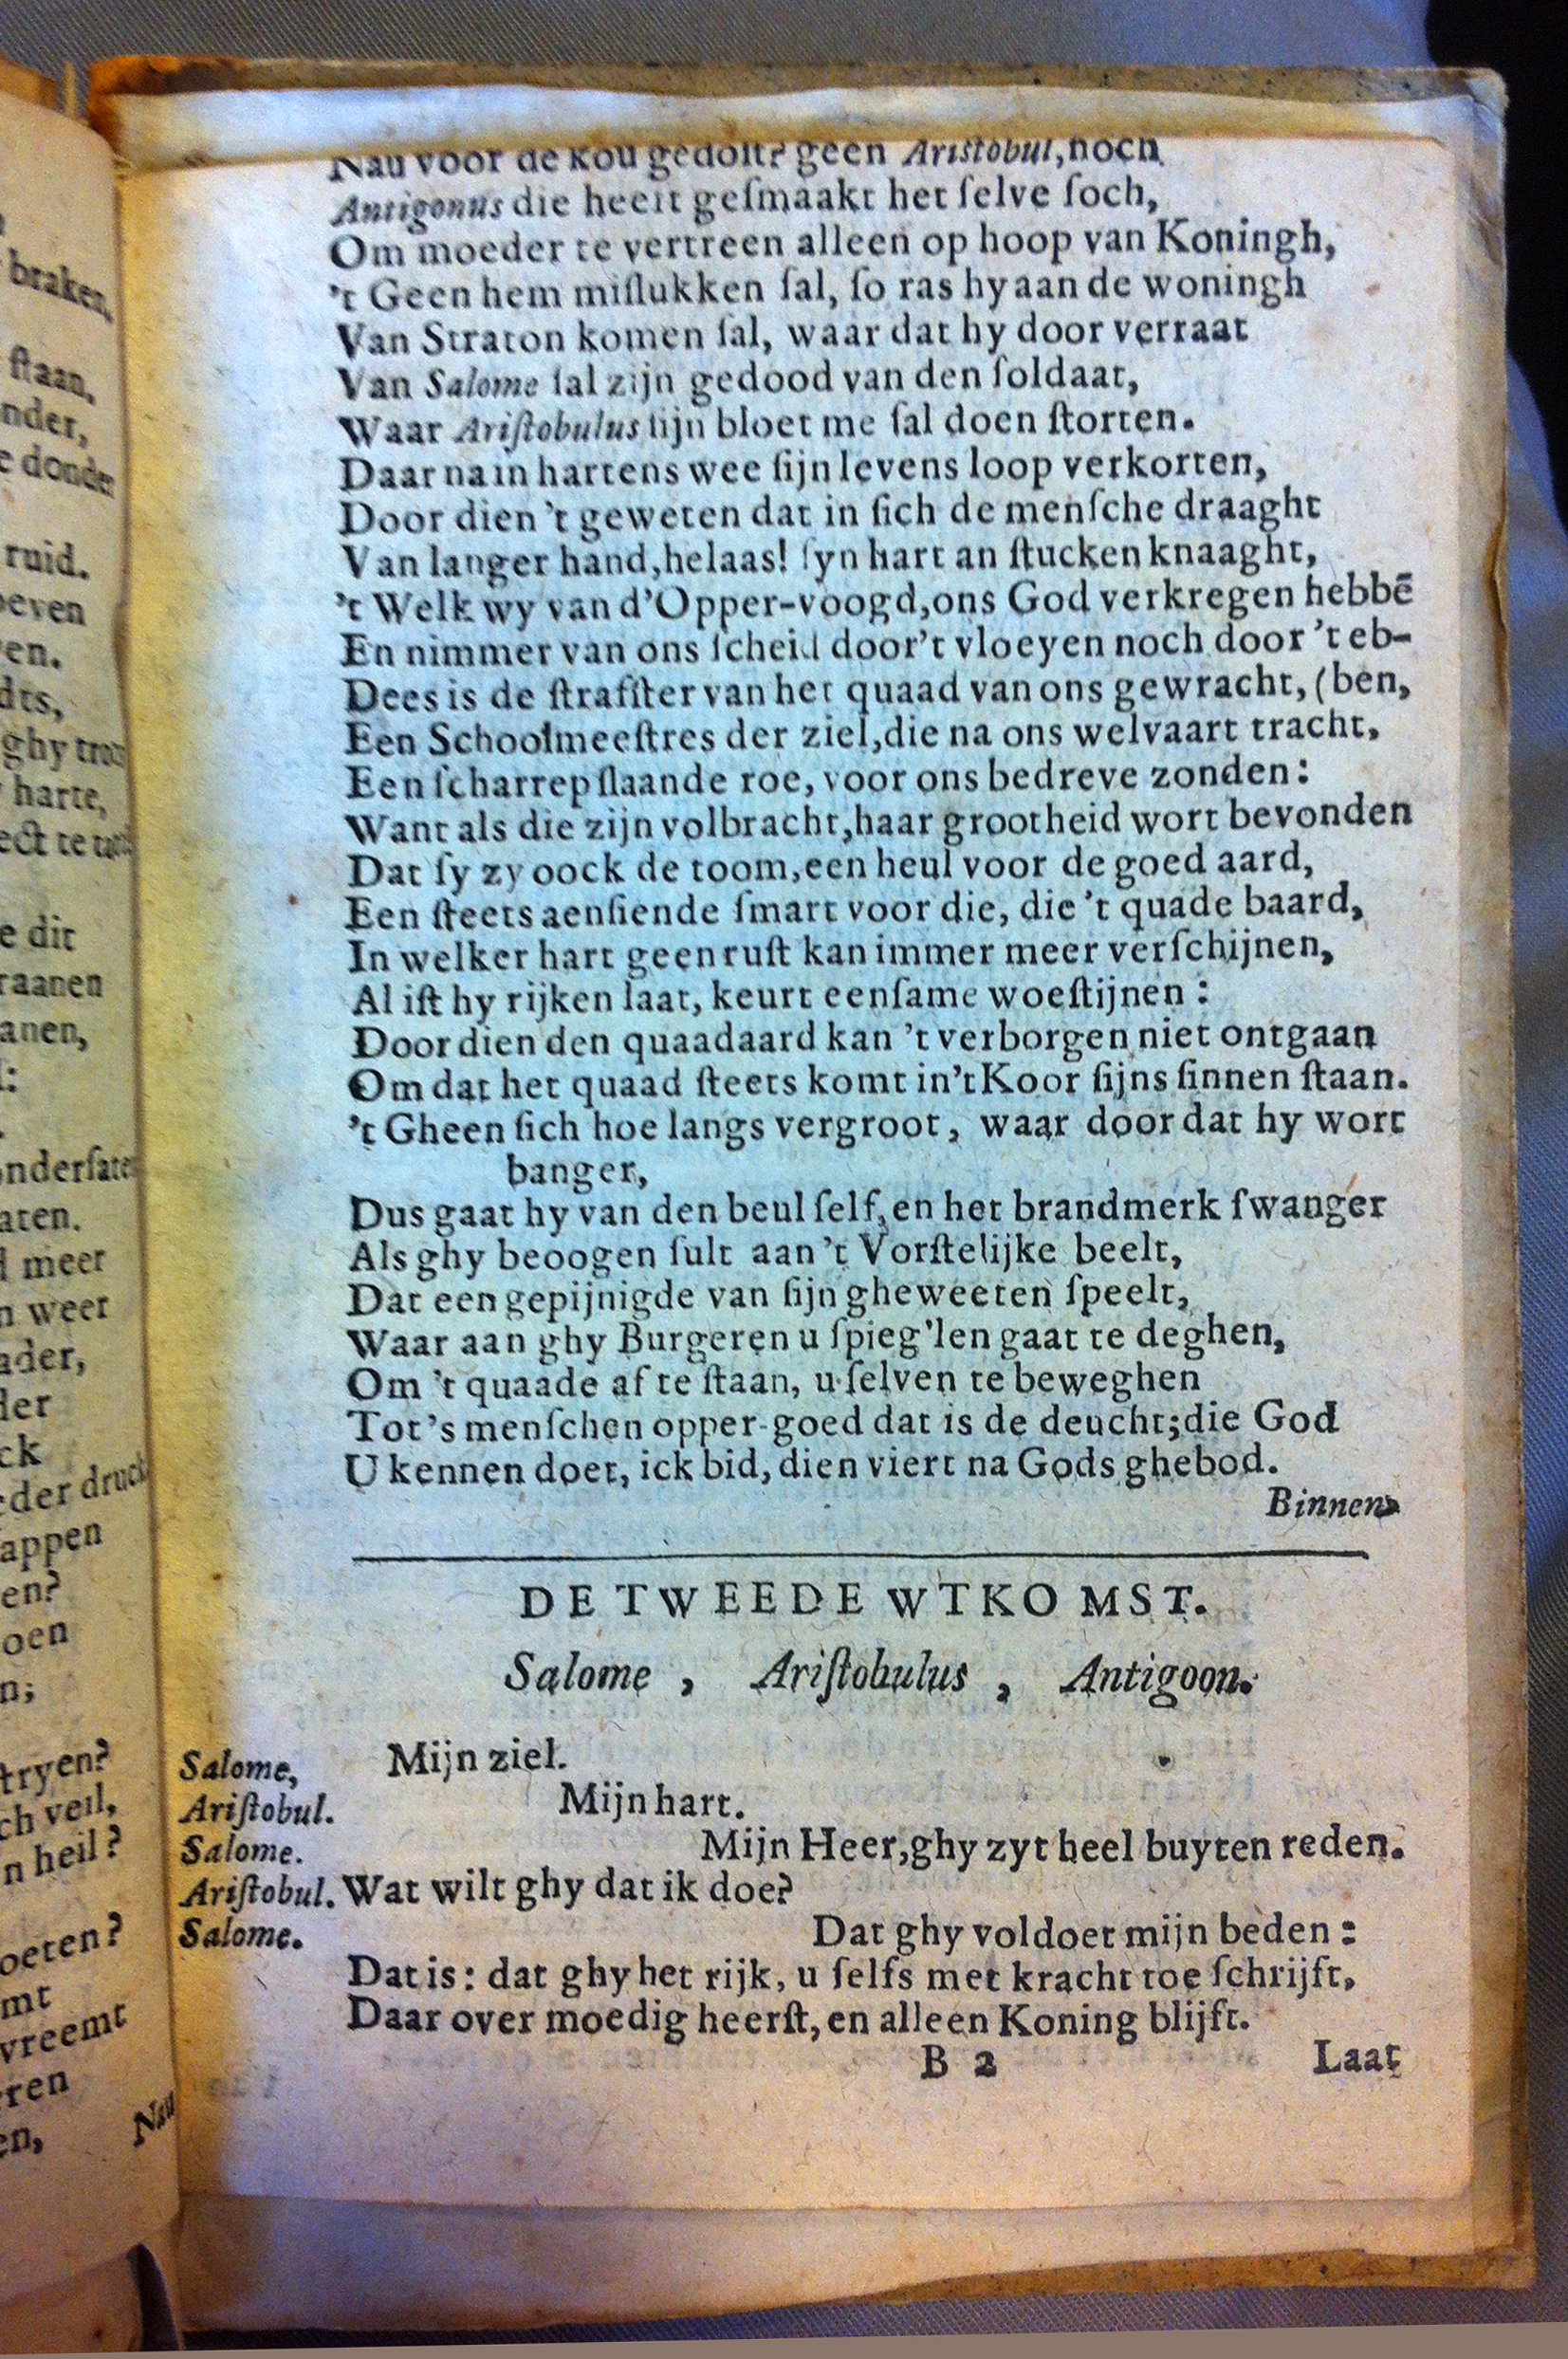 Nau voor de kou gedolt? geen Aristobul, noch
Antigonus die heeft geſmaakt het ſelve ſoch,
Om moeder te vertreen alleen op hoop van Koningh,
't Geen hem miſlukken ſal, ſo ras hy aan de woningh
Van Straton komen ſal, waar dat hy door verraat
Van Salome ſal zijn gedood van den ſoldaat,
Waar Ariſtobulus ſijn bloet me ſal doen ſtorten.
Daar na in hartens wee ſijn levens loop verkorten,
Door dien 't geweten dat in ſich de menſche draaght
Van langer hand, helaas! ſyn hart an ſtucken knaaght,
't Welk wy van d'Opper-voogd, ons God verkregen hebbē
En nimmer van ons ſcheid door 't vloeyen noch door 't eb-
Dees is de ſtrafſter van het quaad van ons gewracht, (ben,
Een Schoolmeeſtres der ziel, die na ons welvaart tracht,
Een ſcharrep ſlaande roe, voor ons bedreve zonden:
Want als die zijn volbracht, haar grootheid wort bevonden
Dat ſy zy oock de toom, een heul voor de goed aard,
Een ſteets aenſiende ſmart voor die, die 't quade baard,
In welker hart geen ruſt kan immer meer verſchijnen,
Al iſt hy rijken laat, keurt eenſame woeſtijnen:
Door dien den quaadaard kan 't verborgen niet ontgaan
Om dat het quaad ſteets komt in't Koor ſijns ſinnen ſtaan.
't Gheen ſich hoe langs vergroot, waar door dat hy wort
banger,
Dus gaat hy van den beul ſelf, en het brandmerk ſwanger
Als ghy beoogen ſult aan 't Vorſtelijke beelt,
Dat een gepijnigde van ſijn gheweeten ſpeelt,
Waar aan ghy Burgeren u ſpieg'len gaat te deghen,
Om 't quaade af te ſtaan, u ſelven te beweghen
Tot 's menſchen opper-goed dat is de deucht; die God
U kennen doet, ick bid, dien viert na Gods ghebod.
Binnen
DE TWEEDE WTKOMST.
Salome, Ariſtobulus, Antigoon.
Salome, Mijn ziel.
Ariſtobul. Mijn hart.
Salome. Mijn Heer, ghy zyt heel buyten reden.
Ariſtobul. Wat wilt ghy dat ik doe?
Salome. Dat ghy voldoet mijn beden:
Dat is: dat ghy het rijk, u ſelfs met kracht toe ſchrijft,
Daar over moedig heerſt, en alleen Koning blijft.
B 2 Laat